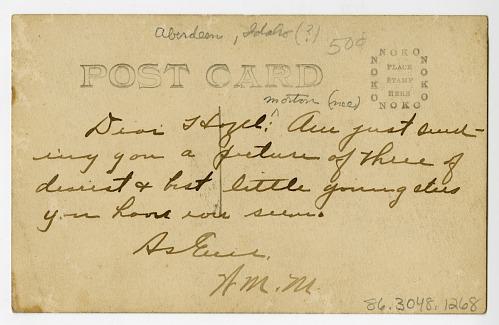 Aberdeen, Idaho (?)
50¢
POST CARD
NOKO NOKO NOKO NOKO
PLACE
STAMP
HERE
morton (nee)
Dear Hazel: Am just send-
ing you a picture of three of
dearest & best little youngsters
you have ever seen.
As Ever.
H. M. M.
86.3048.1268